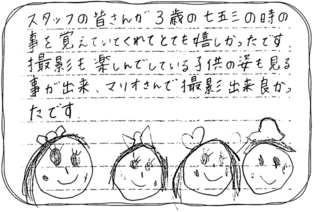 スタッフの皆さんが3歳の七五三の時の
事を覚えていてくれてとても嬉しかったです。
撮影も楽しんでしている子供の姿も見る
事が出来、マリオさんで撮影出来良かっ
たです